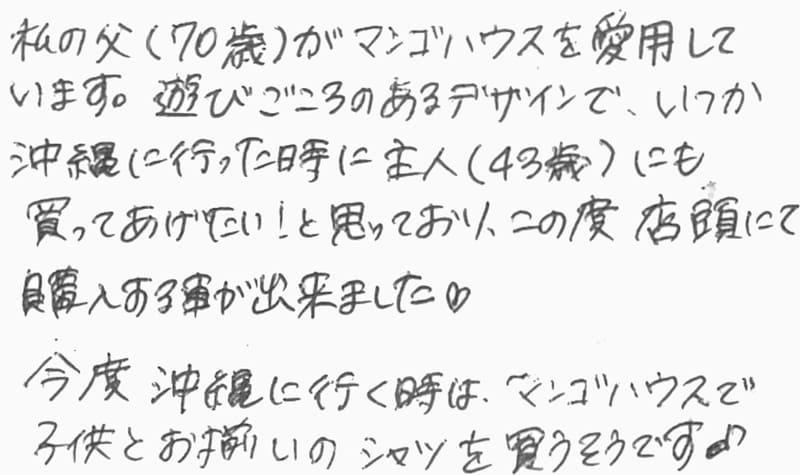 私の父(70歳)がマンゴハウスを愛用して
います。遊びごころのあるデザインで、いつか
沖縄に行った時に主人(43歳)にも
買ってあげたい!と思っており、この度 店頭にて
購入する事が出来ました♡
今度 沖縄に行く時は、マンゴハウスで
子供とお揃いの シャツを買うそうです♪